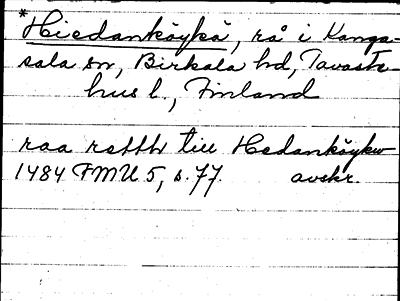 *Hiedanköykä, rå i Kanga-
sala sn, Birkala hd, Tavaste-
hus l., Finland
raa retth till Hedanköykw
1484 FMU 5, s. 77. avskr.